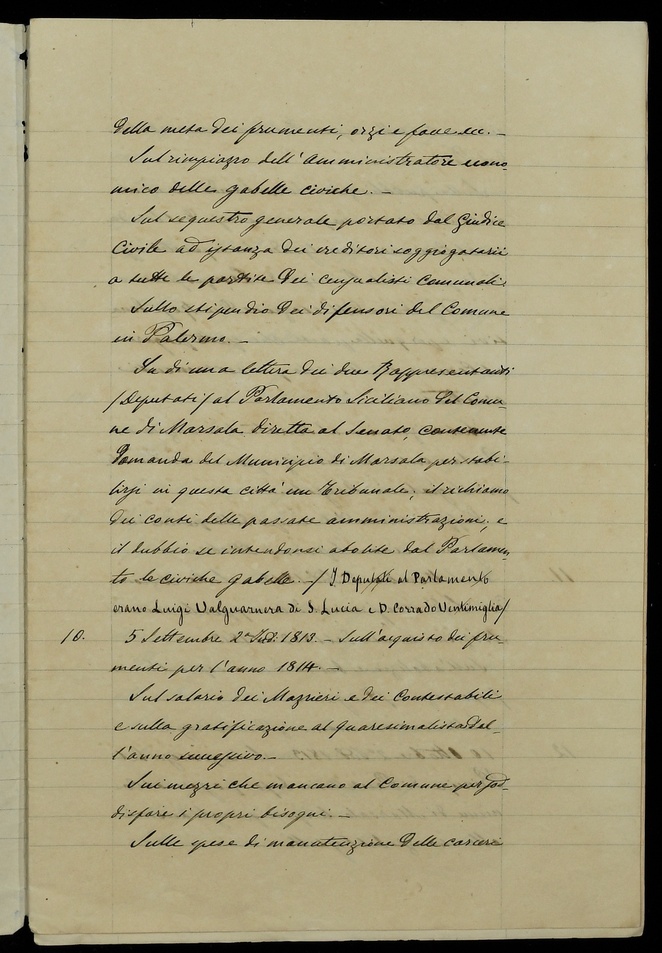 della meta dei frumenti, orzi e fave ec. –
Sul rimpiazzo dell'amministratore econo-
mico delle gabelle civiche. –
Sul sequestro generale portato dal Giudice
Civile ad istanza dei creditori soggiogatarii
a tutte le partite dei censualisti comunali.
Sullo stipendio dei difensori del Comune
in Palermo. –
Su di una lettera dei due Rappresentanti
/Deputati/ al Parlamento Siciliano del Comu-
ne di Marsala diretta al Senato, contenente
domanda del Municipio di Marsala per stabi-
lirsi in questa città un Tribunale; il richiamo
dei conti delle passate amministrazioni; e
il dubbio se intendonsi abolite dal Parlamen-
to le civiche gabelle. /I Deputati al Parlamento
erano Luigi Valguarnera di S. Lucia e D. Corrado Ventimiglia/
10. 5 Settembre 2ª Ind. 1813. – Sull'acquisto dei fru-
menti per l'anno 1814. –
Sul salario dei Mazzieri e dei Contestabili
e sulla gratificazione al quaresimalista del-
l'anno successivo. –
Sui mezzi che mancano al Comune per sod-
disfare i propri bisogni. –
Sulle spese di manutenzione delle carceri